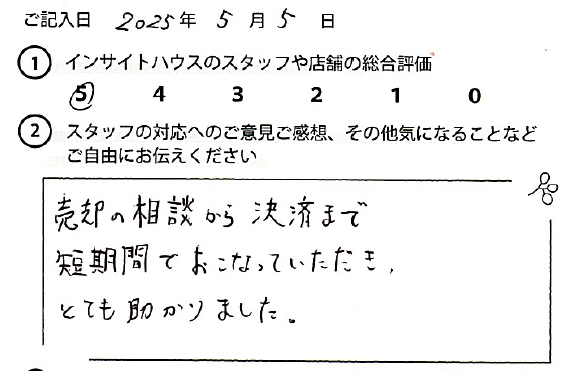 ご記入日 2025年 5月 5日
① インサイトハウスのスタッフや店舗の総合評価
5 4 3 2 1 0
② スタッフの対応へのご意見ご感想、その他気になることなど
ご自由にお伝えください
売却の相談から決済まで
短期間でおこなっていただき、
とても助かりました。